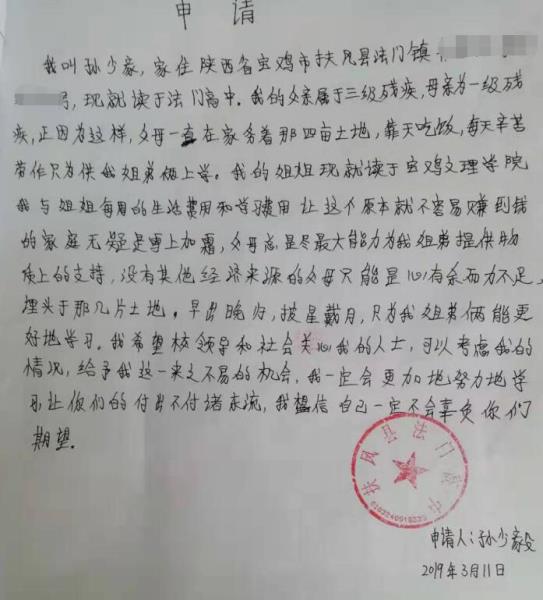 申请
我叫孙少毅,家住陕西省宝鸡市扶风县法门镇
号,现就读于法门高中。我的父亲属于三级残疾,母亲为一级残
疾,正因为这样,父母一直在家务着那四亩土地,靠天吃饭,每天辛苦
劳作只为供我姐弟俩上学。我的姐姐现就读于宝鸡文理学院
我与姐姐每周的生活费用和学习费用让这个原本就不容易赚到钱
的家庭无疑是雪上加霜,父母总是尽最大能力为我姐弟提供物
质上的支持,没有其他经济来源的父母只能是心有余而力不足,
埋头于那几片土地。早出晚归,披星戴月,只为我姐弟俩能更
好地学习。我希望校领导和社会关心我的人士,可以考虑我的
情况,给予我这一来之不易的机会,我一定会更加地努力地学
习,让你们的付出不付诸东流,我相信自己一定不会辜负你们
期望。
扶风县法门高中
申请人:孙少毅
2019年3月11日